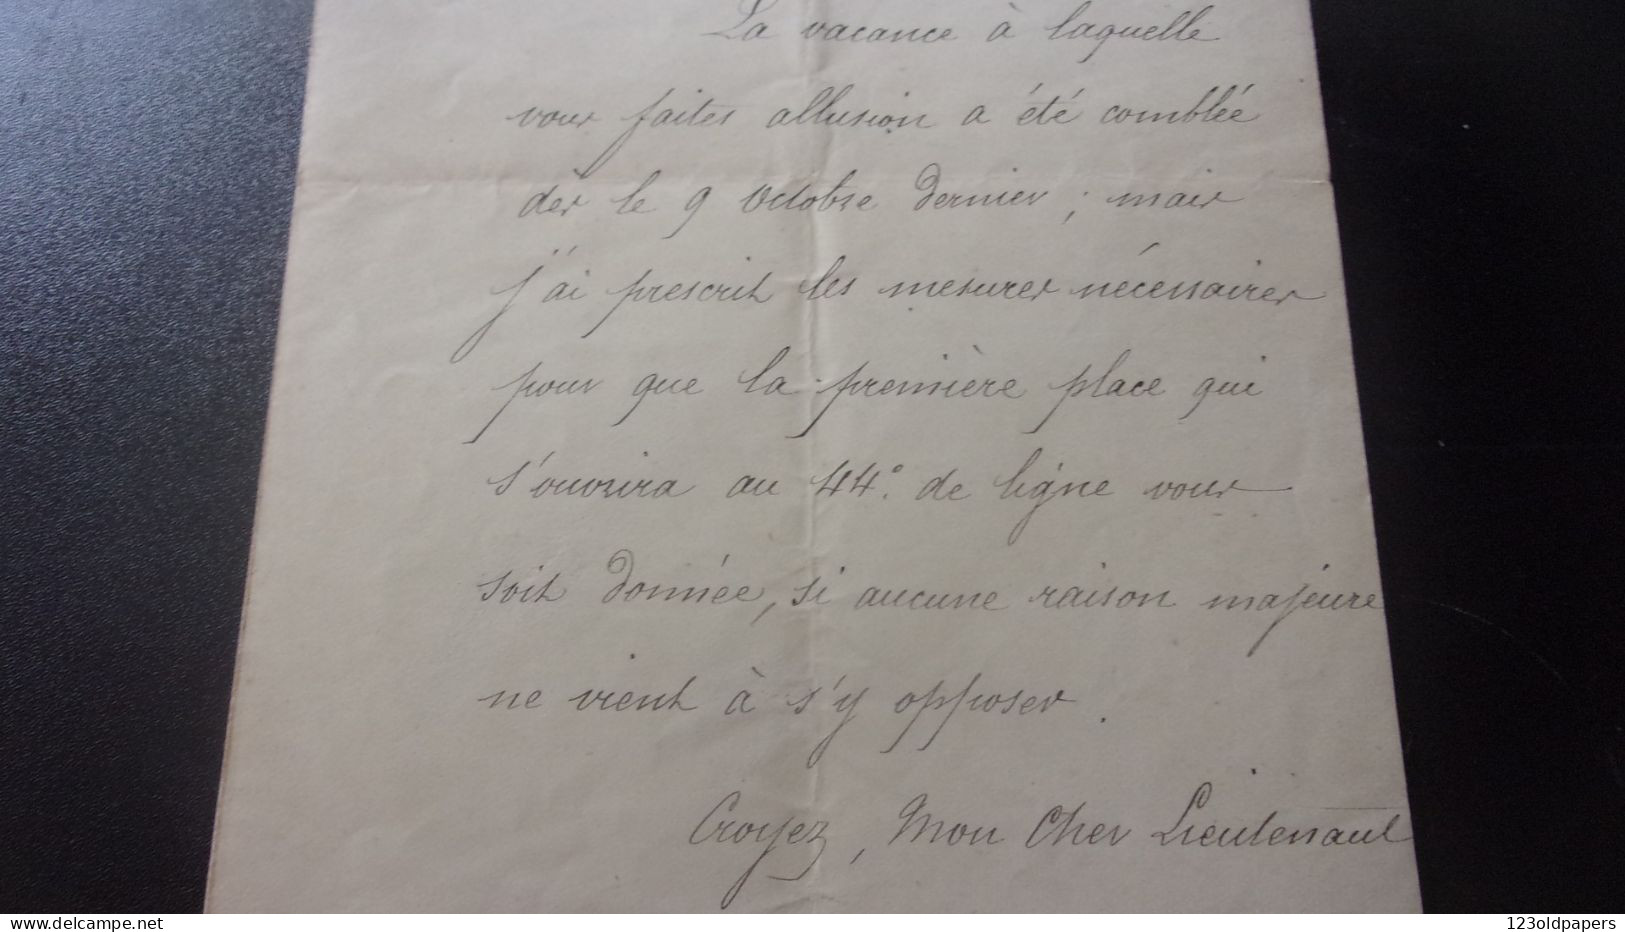 La vacance à laquelle
vous faites allusion a été comblée
dès le 9 Octobre dernier ; mais
j'ai prescrit les mesures nécessaires
pour que la première place qui
s'ouvrira au 44e. de ligne vous
soit donnée, si aucune raison majeure
ne vient à s'y opposer.
Croyez, Mon Cher Lieutenant
delcampe.net
123oldpapers